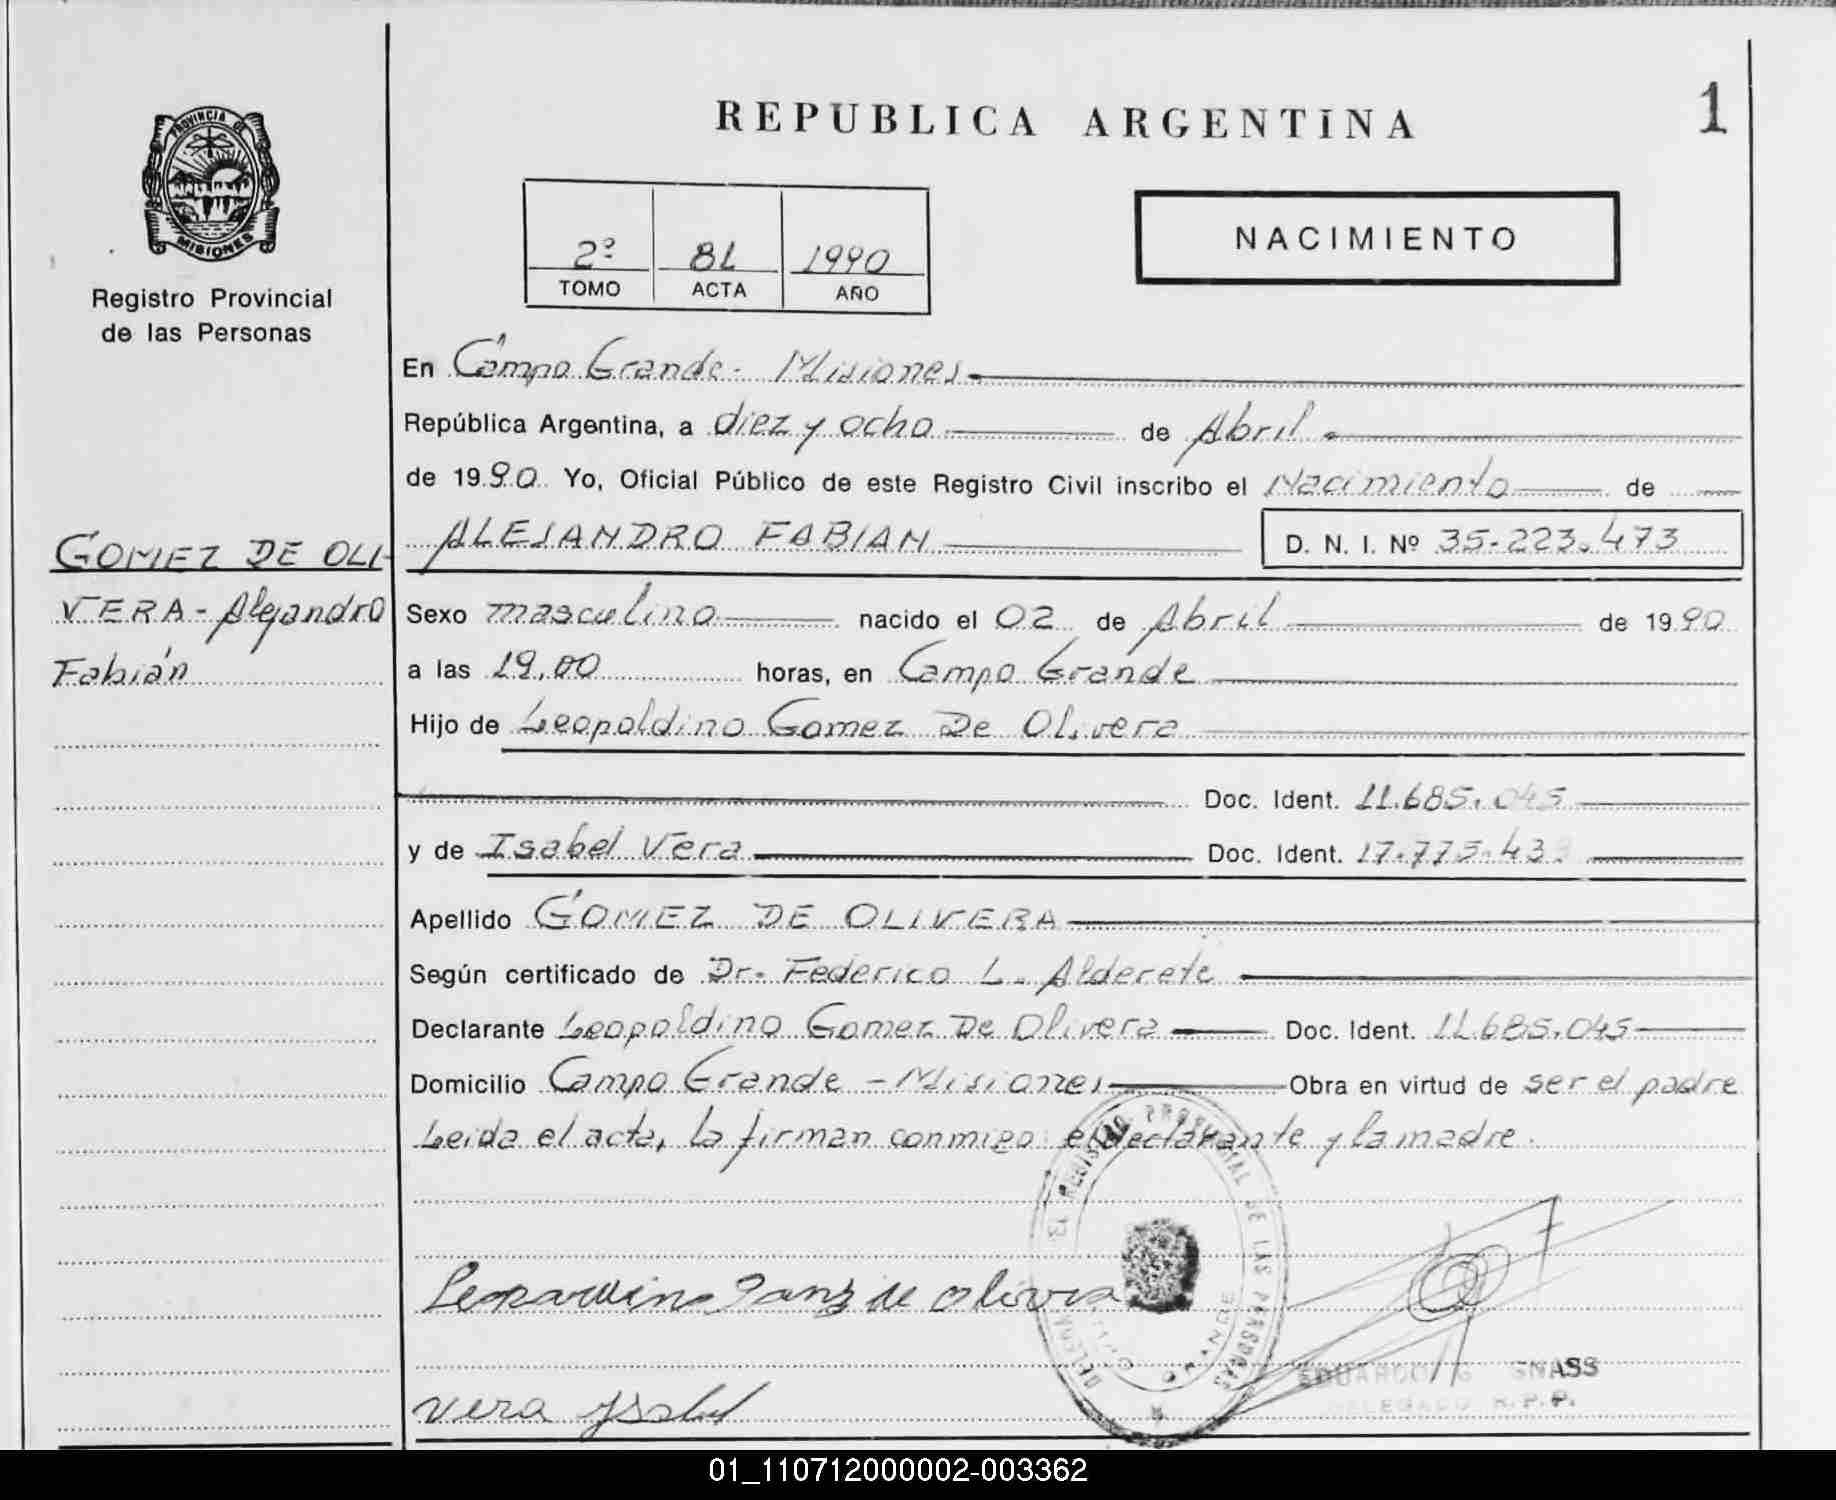 REPUBLICA ARGENTINA
1
PROVINCIA DE
MISIONES
Registro Provincial
de las Personas
2º 81 1990
TOMO ACTA AÑO
NACIMIENTO
En Campo Grande - Misiones
República Argentina, a diez y ocho de Abril
de 1990 Yo, Oficial Público de este Registro Civil inscribo el Nacimiento de
ALEJANDRO FABIAN D. N. I. Nº 35.223.473
GOMEZ DE OLI-
VERA - Alejandro
Fabián
Sexo masculino nacido el 02 de Abril de 1990
a las 19,00 horas, en Campo Grande
Hijo de Leopoldino Gomez De Olivera
Doc. Ident. 11.685.045
y de Isabel Vera Doc. Ident. 17.775.43
Apellido GOMEZ DE OLIVERA
Según certificado de Dr. Federico L. Alderete
Declarante Leopoldino Gomez De Olivera Doc. Ident. 11.685.045
Domicilio Campo Grande - Misiones Obra en virtud de ser el padre
Leida el acta, la firman conmigo el declarante y la madre.
REGISTRO PROVINCIAL DE LAS PERSONAS
de olivera
vera
EDUARDO GNASS
DELEGADO R.P.P.
01_110712000002-003362